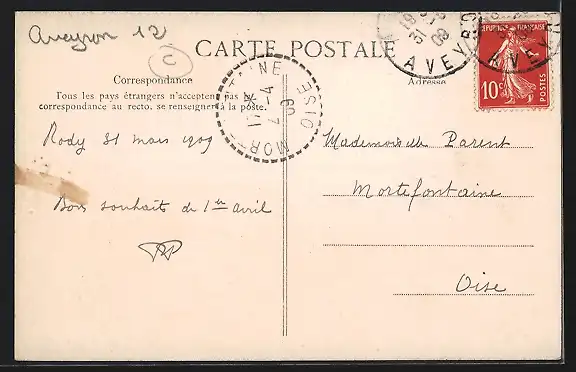 Aveyron 12
C
CARTE POSTALE
Correspondance
Tous les pays étrangers n'acceptent pas la
correspondance au recto, se renseigner à la poste.
Adresse
RÉPUBLIQUE FRANÇAISE
10c
POSTES
31
09
AVEYRON
AVEYRON
OISE
17
2-4
09
Rody 31 mars 1909
Bons souhaits du 1er avril
Mademoiselle Parent
Mortefontaine
Oise